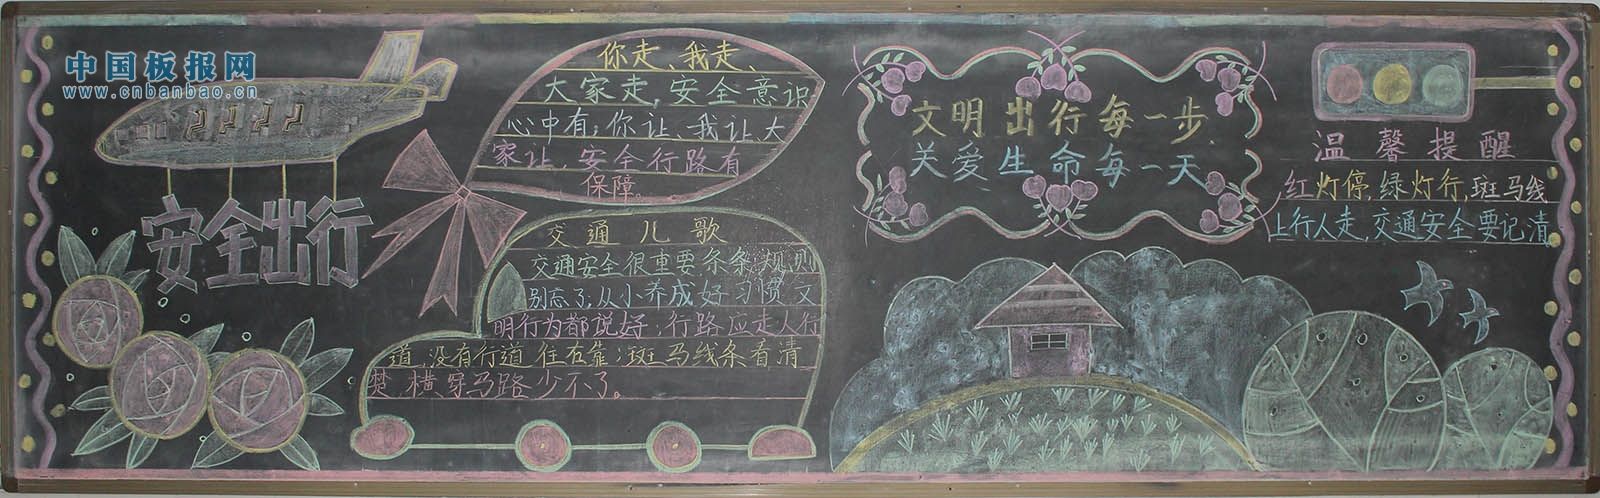 中国板报网
www.cnbanbao.cn
安全出行
你走、我走、
大家走,安全意识
心中有;你让、我让、大
家让,安全行路有
保障。
交通儿歌
交通安全很重要,条条规则
别忘了,从小养成好习惯,文
明行为都说好;行路应走人行
道,没有行道住右靠;斑马线条看清
楚,横穿马路少不了。
文明出行每一步
关爱生命每一天
温馨提醒
红灯停,绿灯行,斑马线
上行人走,交通安全要记清